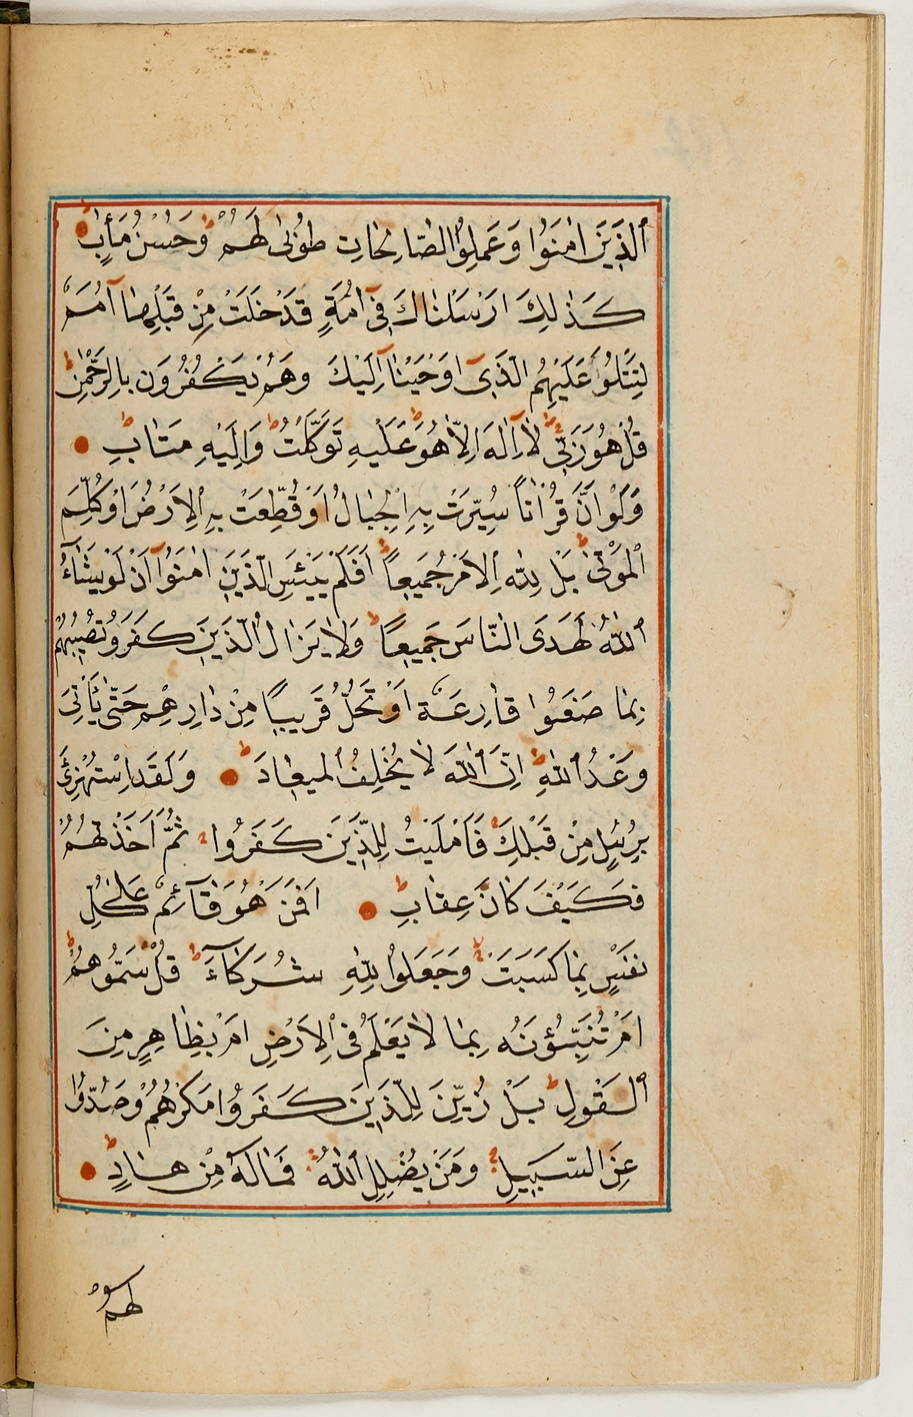 اَلَّذِينَ اٰمَنُوا وَعَمِلُوا الصَّالِحَاتِ طُوبٰى لَهُمْ وَحُسْنُ مَاٰبٍ
كَذٰلِكَ اَرْسَلْنَاكَ فِى اُمَّةٍ قَدْ خَلَتْ مِنْ قَبْلِهَا اُمَمٌ
لِتَتْلُوَا عَلَيْهِمُ الَّذِى اَوْحَيْنَا اِلَيْكَ وَهُمْ يَكْفُرُونَ بِالرَّحْمٰنِ
قُلْ هُوَ رَبِّى لَا اِلٰهَ اِلَّا هُوَ عَلَيْهِ تَوَكَّلْتُ وَاِلَيْهِ مَتَابِ
وَلَوْ اَنَّ قُرْاٰنًا سُيِّرَتْ بِهِ الْجِبَالُ اَوْ قُطِّعَتْ بِهِ الْاَرْضُ اَوْ كُلِّمَ
الْمَوْتٰى بَلْ لِلّٰهِ الْاَمْرُ جَمِيعًا اَفَلَمْ يَيْئَسِ الَّذِينَ اٰمَنُوا اَنْ لَوْ يَشَاءُ
اللّٰهُ لَهَدَى النَّاسَ جَمِيعًا وَلَا يَزَالُ الَّذِينَ كَفَرُو تُصِيبُهُمْ
بِمَا صَنَعُوا قَارِعَةٌ اَوْ تَحُلُّ قَرِيبًا مِنْ دَارِهِمْ حَتّٰى يَأْتِىَ
وَعْدُ اللّٰهِ اِنَّ اللّٰهَ لَا يُخْلِفُ الْمِيعَادَ وَلَقَدِ اسْتُهْزِئَ
بِرُسُلٍ مِنْ قَبْلِكَ فَاَمْلَيْتُ لِلَّذِينَ كَفَرُوا ثُمَّ اَخَذْتُهُمْ
فَكَيْفَ كَانَ عِقَابِ اَفَمَنْ هُوَ قَائِمٌ عَلٰى كُلِّ
نَفْسٍ بِمَا كَسَبَتْ وَجَعَلُوا لِلّٰهِ شُرَكَاءَ قُلْ سَمُّوهُمْ
اَمْ تُنَبِّؤُنَهُ بِمَا لَا يَعْلَمُ فِى الْاَرْضِ اَمْ بِظَاهِرٍ مِنَ
الْقَوْلِ بَلْ زُيِّنَ لِلَّذِينَ كَفَرُوا مَكْرُهُمْ وَصُدُّوا
عَنِ السَّبِيلِ وَمَنْ يُضْلِلِ اللّٰهُ فَمَا لَهُ مِنْ هَادٍ
لَهُمْ